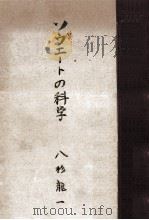 ソヴエートの科学
八杉龍一